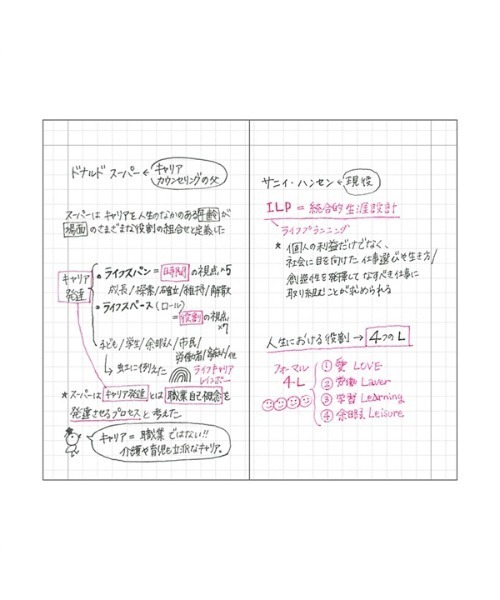 ドナルド スーパー ← キャリア
カウンセリングの父
スーパーは キャリアを人生のなかのある年齢が
場面のさまざまな役割の組合せと定義した
キャリア
発達
● ライフスパン = 時間の視点 ×5
成長/探索/確立/維持/解放
● ライフスペース (ロール)
= 役割の視点
×7
子ども/学生/余暇人/市民/
労働者/家庭人/他
→ 虹に例えた
ライフキャリア
レインボー
* スーパーは キャリア発達 とは 職業自己概念を
発達させるプロセスと考えた
キャリア = 職業 ではない!!
介護や育児も立派なキャリア。
サニイ・ハンセン ← 現役
ILP = 統合的生涯設計
ライフプランニング
* 個人の利益だけでなく、
社会に目を向けた仕事選びや生き方/
創造性を発揮してなすべき仕事に
取り組むことが求められる
人生における役割 → 4つのL
フォーマル
4-L
① 愛 LOVE
② 労働 Laver
③ 学習 Learning
④ 余暇 Leisure